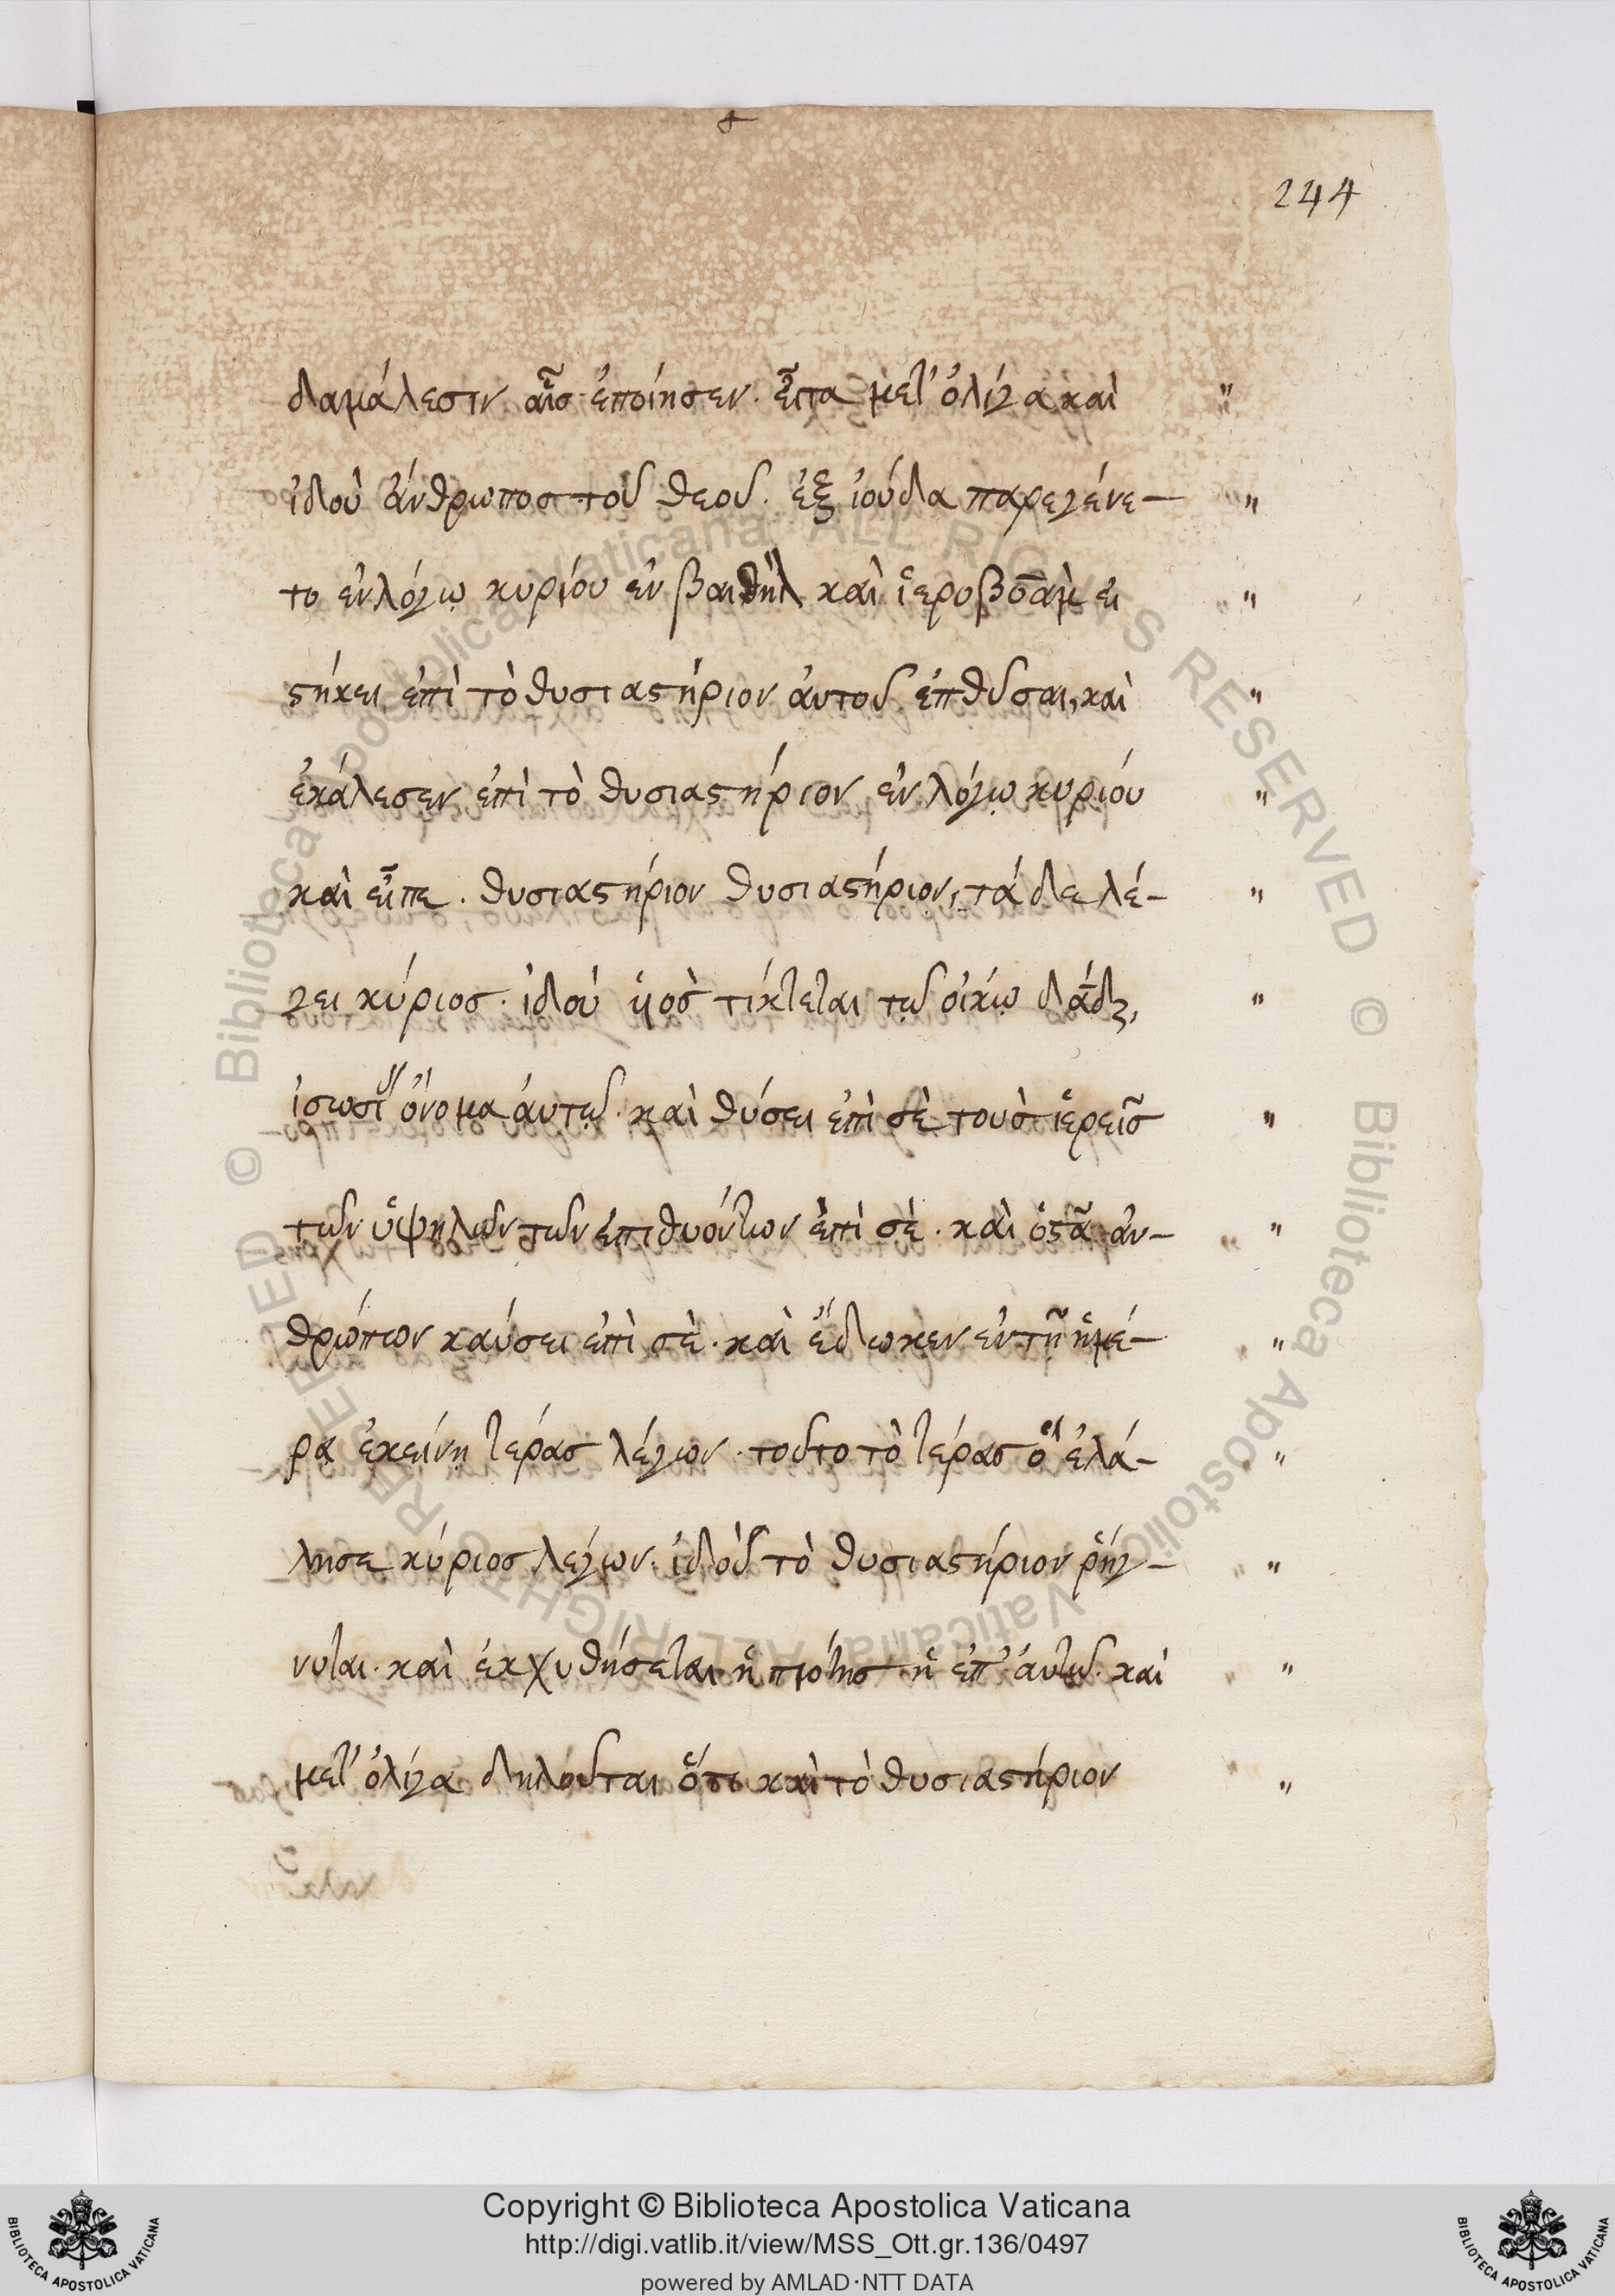 244
δαμάλεσιν αἷς ἐποίησεν. εἶτα μετ' ὀλίγα καὶ "
ἰδοὺ ἄνθρωπος τοῦ θεοῦ. ἐξ ἰούδα παρεγένε- "
το ἐν λόγῳ κυρίου ἐν βαιθὴλ καὶ ἱεροβοαμ εἱ "
στήκει ἐπὶ τὸ θυσιαστήριον ἀυτοῦ ἐπιθῦσαι, καὶ "
ἐκάλεσεν ἐπὶ τὸ θυσιαστήριον ἐν λόγῳ κυρίου "
καὶ εἶπε. θυσιαστήριον θυσιαστήριον, τάδε λέ- "
γει κύριος. ἰδού ὑιὸς τίκτεται τῷ οἴκῳ δᾱδ, "
ἰσωσὶ ὄνομα ἀυτῷ. καὶ θύσει ἐπὶ σὲ τοὺς ἱερεῖς "
τῶν ὑψηλῶν τῶν ἐπιθυόντων ἐπὶ σέ. καὶ ὀστᾶ ἀν- "
θρώπων καύσει ἐπὶ σὲ. καὶ ἔδωκεν ἐν τῇ ἡμέ- "
ρᾳ ἐκείνῃ τέρας λέγων. τοῦτο τὸ τέρας ὃ ἐλά- "
λησε κύριος λέγων. ἰδοὺ τὸ θυσιαστήριον ῥήγ- "
νυται. καὶ ἐκχυθήσεται ἡ πιότης ἡ ἐπ' ἀυτῷ. καὶ "
μετ' ὀλίγα δηλοῦται ὅτι καὶ τὸ θυσιαστήριον "
Copyright © Biblioteca Apostolica Vaticana
http://digi.vatlib.it/view/MSS_Ott.gr.136/0497
powered by AMLAD·NTT DATA
BIBLIOTECA APOSTOLICA VATICANA
BIBLIOTECA APOSTOLICA VATICANA
© Biblioteca Apostolica Vaticana ALL RIGHTS RESERVED
© Biblioteca Apostolica Vaticana ALL RIGHTS RESERVED